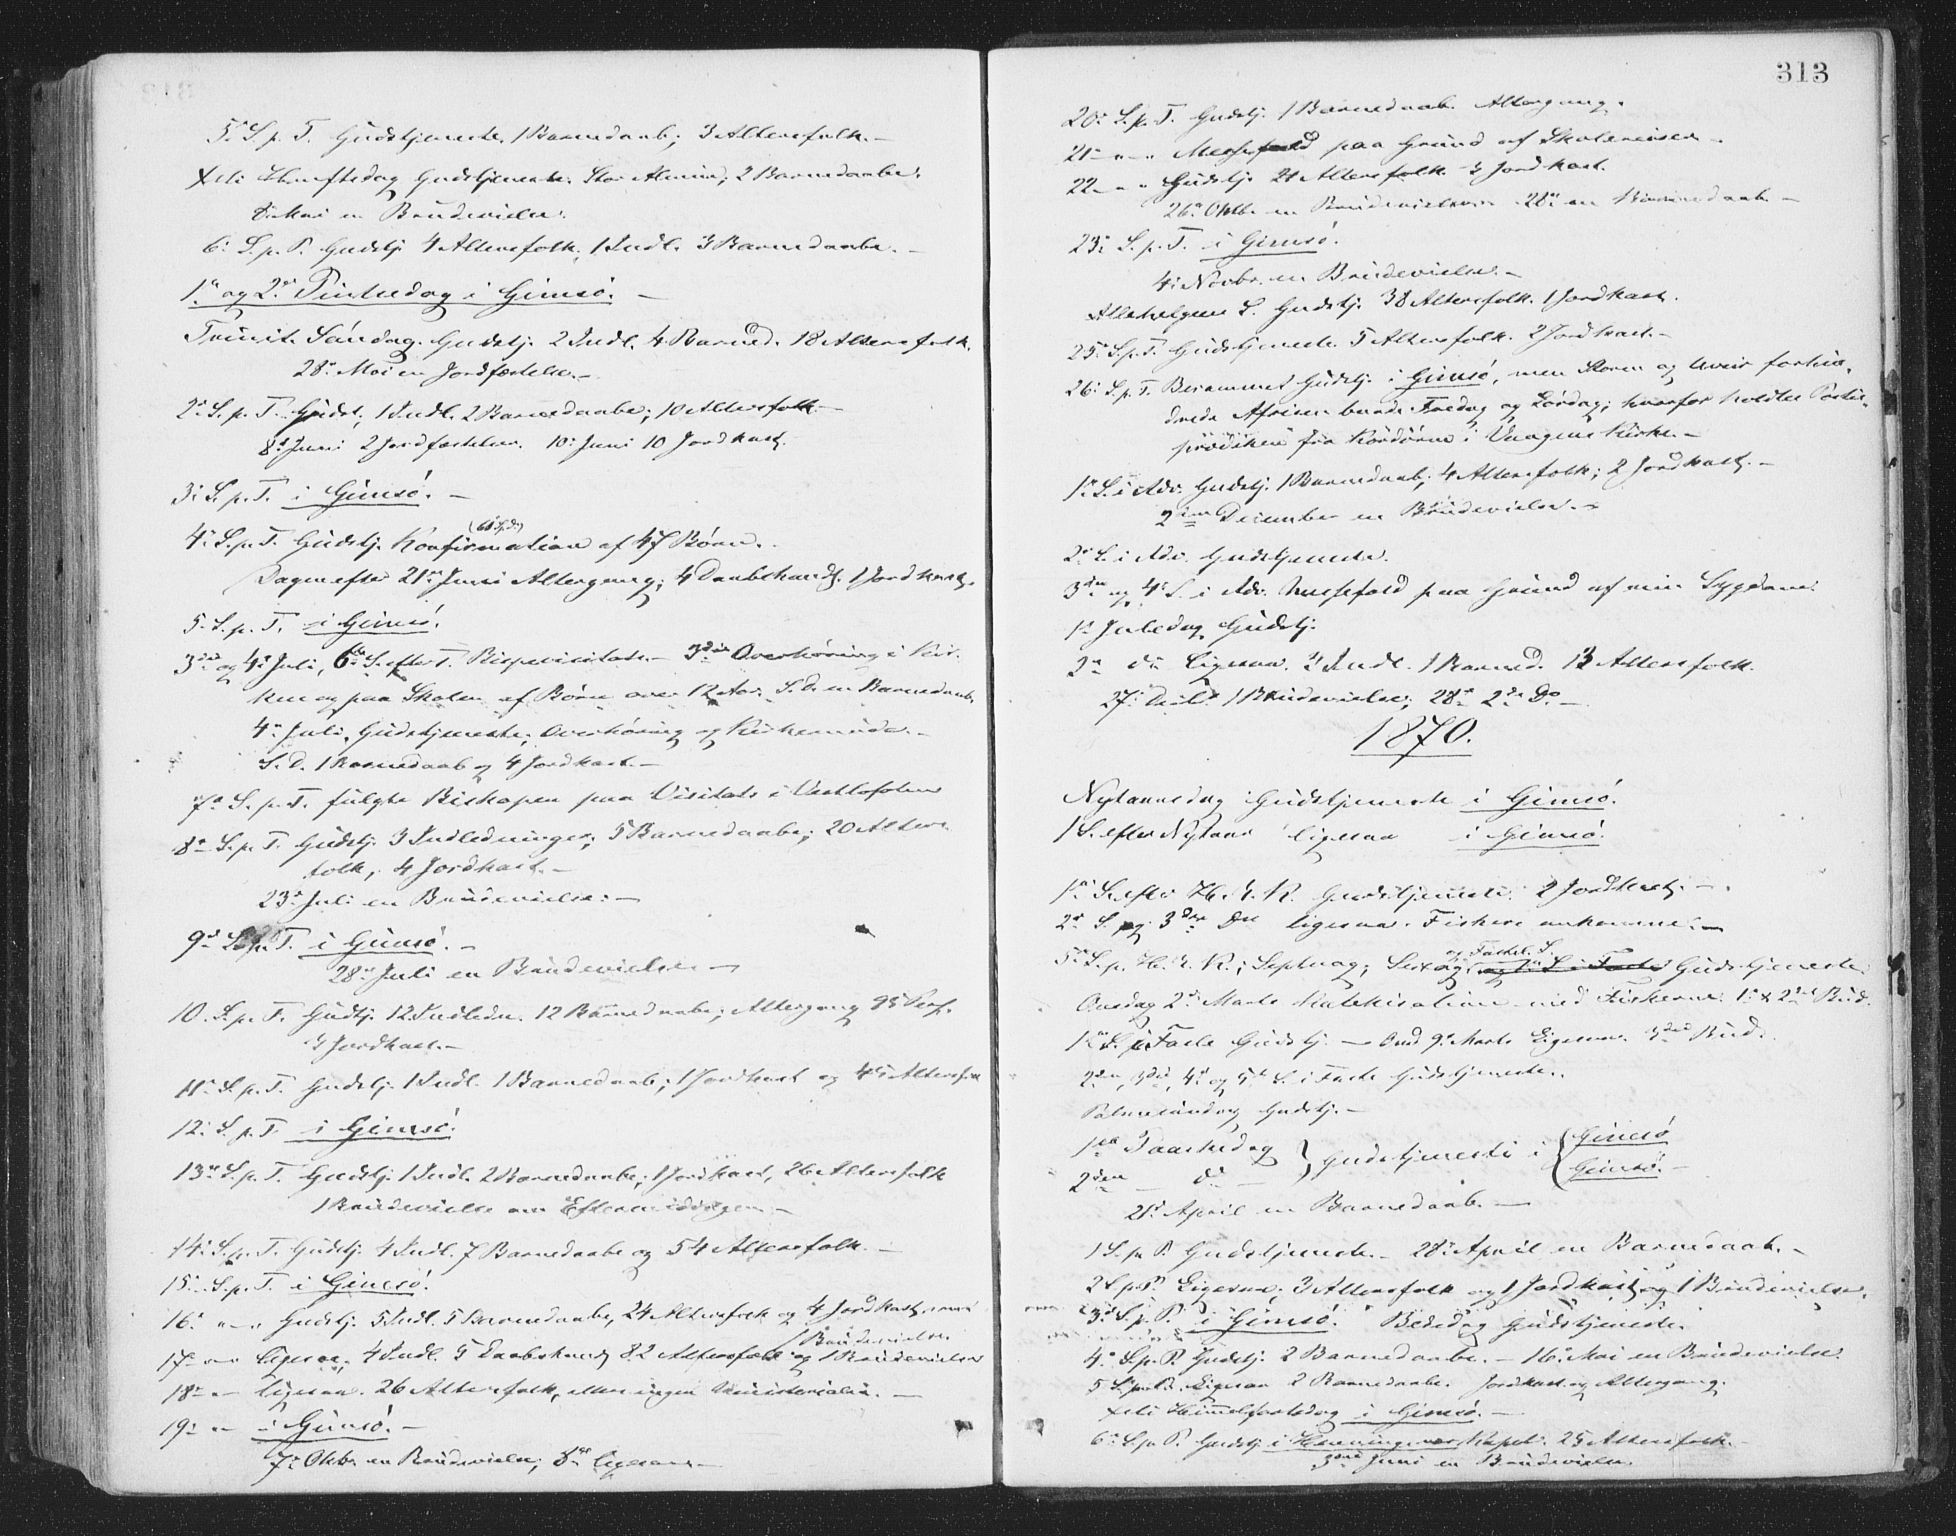 5. S. p. T. Gudstjeneste. 1 Barnedaab; 3 Altersfolk. –
Xsti Himfrtsdag Gudstjeneste. Stor Almue; 2 Barnedaabe.
8. Mai en Brudevielse.
6. S. p. P. Gudstj. 4 Altersfolk, 1 Indl. 3 Barnedaabe. –
1ste og 2den Pintsedag i Gimsö. –
Trinit. Söndag. Gudstj. 2 Indl. 4 Barned. 18 Altersfolk.
28. Mai en Jordfæstelse. –
2. S. p. T. Gudst; 1 Indl. 2 Barnedaabe; 10 Altersfolk –
8de Juni 2 Jordfæstelser. 10. Juni 10 Jordkast.
3. S. p. T. i Gimsö. –
4. S. p. T. Gudstj. Konfirmation af 47 Börn.
Dagen efter 21de Juni Altergang; 4 Daabshandl. 1 Jordkast.
5. S. p. T. i Gimsö.
3die og 4de Juli, 6te S. efter T. Bispevisitats. – 3die Overhöring i Kir-
ken og paa Skolen af Börn over 12 Aar. S. D. en Barnedaab.
4de Juli, Gudstjeneste; Overhöring og Kirkemöde. –
S. D. 1 Barnedaab og 4 Jordkast. –
7de S. p. T. fulgte Biskopen paa Visitats i Vestlofoten
8de S. p. T. Gudstj. 3 Indledninger; 5 Barnedaabe; 20 Alters-
folk; 4 Jordkast. –
23de Juli en Brudevielse. –
9de S. p. T. i Gimsö. –
28de Juli en Brudevielse –
10. S. p. T. Gudstj. 12 Indledn. 12 Barnedaabe; Altergang 95 Pers.
3 Jordkast. –
11. S. p. T. Gudstj. 1 Indl. 1 Barnedaab; 1 Jordkast og
12. S. p. T. i Gimsö.
13de S. p. T. Gudstj. 1 Indl. 2 Barnedaabe; 1 Jordkast, 26 Altersfolk
1 Brudevielse om Eftermiddagen –
14. S. p. T. Gudstj. 4 Indl. 7 Barnedaabe og 54 Altersfolk. –
15. S. p. T. i Gimsö.
16. " – " Gudstj. 5 Indl. 5 Barnedaabe, 24 Altersfolk og 4 Jordkast,
1 Brudevielse
17 – " – ligesaa; 4 Indl. 5 Daabshandl 82 Altersfolk og 1 Brudevielse
18 – " – ligesaa. 26 Altersfolk, ellers ingen Ministerialia. –
19. " – i Gimsö. –
7. Oktbr en Brudevielse, 8de ligesaa –
313
20. S. p. T. Gudstj. 1 Barnedaab. Altergang.
21 – " – " Messefald paa Grund af Skolereiser –
22 – " – " Gudstj. 21 Altersfolk 3 Jordkast.
26. Oktbr en Brudevielse 28. en Barnedaab –
23. S. p. T. i Gimsö.
4. Novbr. en Brudevielse. –
Allehelgens S. Gudstj. 38 Altersfolk. 1 Jordkast.
25. S. p. T. Gudstjeneste 5 Altersfolk. 2 Jordkast. –
26. S. p. T. Berammet Gudstj. i Gimsö, men Storm og Uveir forhin-
drede Afreisen baade Fredag og Lördag; hvorfor holdtes
prædiken fra Kordören i Vaagens Kirke. –
1. S. i Adv. Gudstj. 1 Barnedaab; 4 Altersfolk; 2 Jordkast. –
2den December en Brudevielse. –
2. S. i Adv. Gudstjeneste.
3die og 4. S. i Adv. Messefald paa Grund af min Sygdom.
1ste Juledag Gudstj.
2den do Ligesaa. 3 Indl. 1 Barned. 13 Altersfolk.
27. Decbr 1 Brudevielse; 28de 2de Do –
1870.
Nytaarsdag Gudstjeneste i Gimsö.
1 S. efter Nytaar ligesaa i Gimsö.
1ste S. efter H. 3. K. Gudstjeneste 2 Jordkast. –
2den S. og 3die do ligesaa. Fiskere ankomne. –
og Fastel. S.
5te S. p. H. 3. K.; Septuag; Sexag og 1ste S. i Faste Gudstjeneste.
Onsdag 2den Marts Katekisation med Fiskerne. 1. & 2det Bud.
1ste S. i Faste Gudstj. – Onsd 9. Marts Ligesaa. 3die Bud.
2den, 3die, 4de og 5te S. i Faste Gudstjeneste.
Palmesöndag Gudstj. –
1ste Paaskedag } Gudstjeneste i { Gimsö
2den – do – Gimsö. –
21. April en Barnedaab. –
1 S. p. P. Gudstjeneste. – 28. April en Barnedaab. –
2 S. p. P. Ligesaa; 3 Altersfolk og 1 Jordkast og 1 Brudevielse.
3die S. p. P. i Gimsö. Bededag Gudstjeneste.
4. S. p. P. Gudstj. 2 Barnedaabe. – 16. Mai en Brudevielse
5 S. p. P. Ligesaa 2 Barnedaabe. Jordkast og Altergang.
Xsti Himmelfartsdag i Gimsö. –
6. S. p. P. Gudstj i Henningsvær Kapel. 25 Altersfolk. –
3die Juni en Brudevielse.